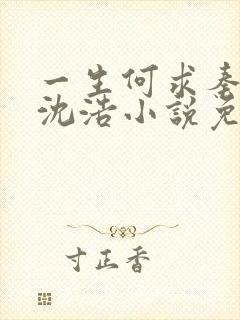 一生何求秦
沈浩小說免
寸正香